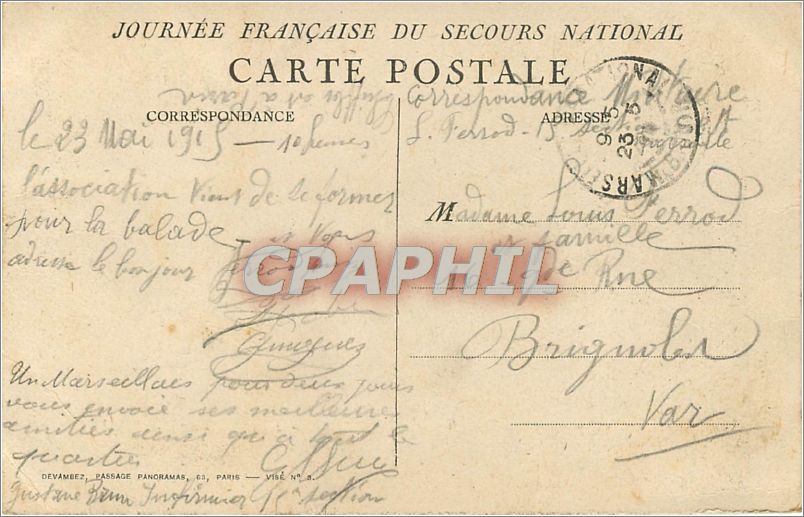 JOURNÉE FRANÇAISE DU SECOURS NATIONAL
CARTE POSTALE
CORRESPONDANCE
ADRESSE
Correspondance Militaire
L. Ferrod - 15
le 23 Mai 1915 — 10 heures
l'association vient de se former
pour la balade
adresse le bonjour
Un Marseillais pour deux jours
vous envoie ses meilleures
amitiés ainsi qu'à tout le
quartier
DEVAMBEZ, PASSAGE PANORAMAS, 63, PARIS — VISÉ N° 3.
Gustave Brun Infirmier 15e section
Madame Louis Ferrod
et famille
16 gde Rue
Brignoles
Var
MARSEILLE
9 - 5
23 - 5
CPAPHIL